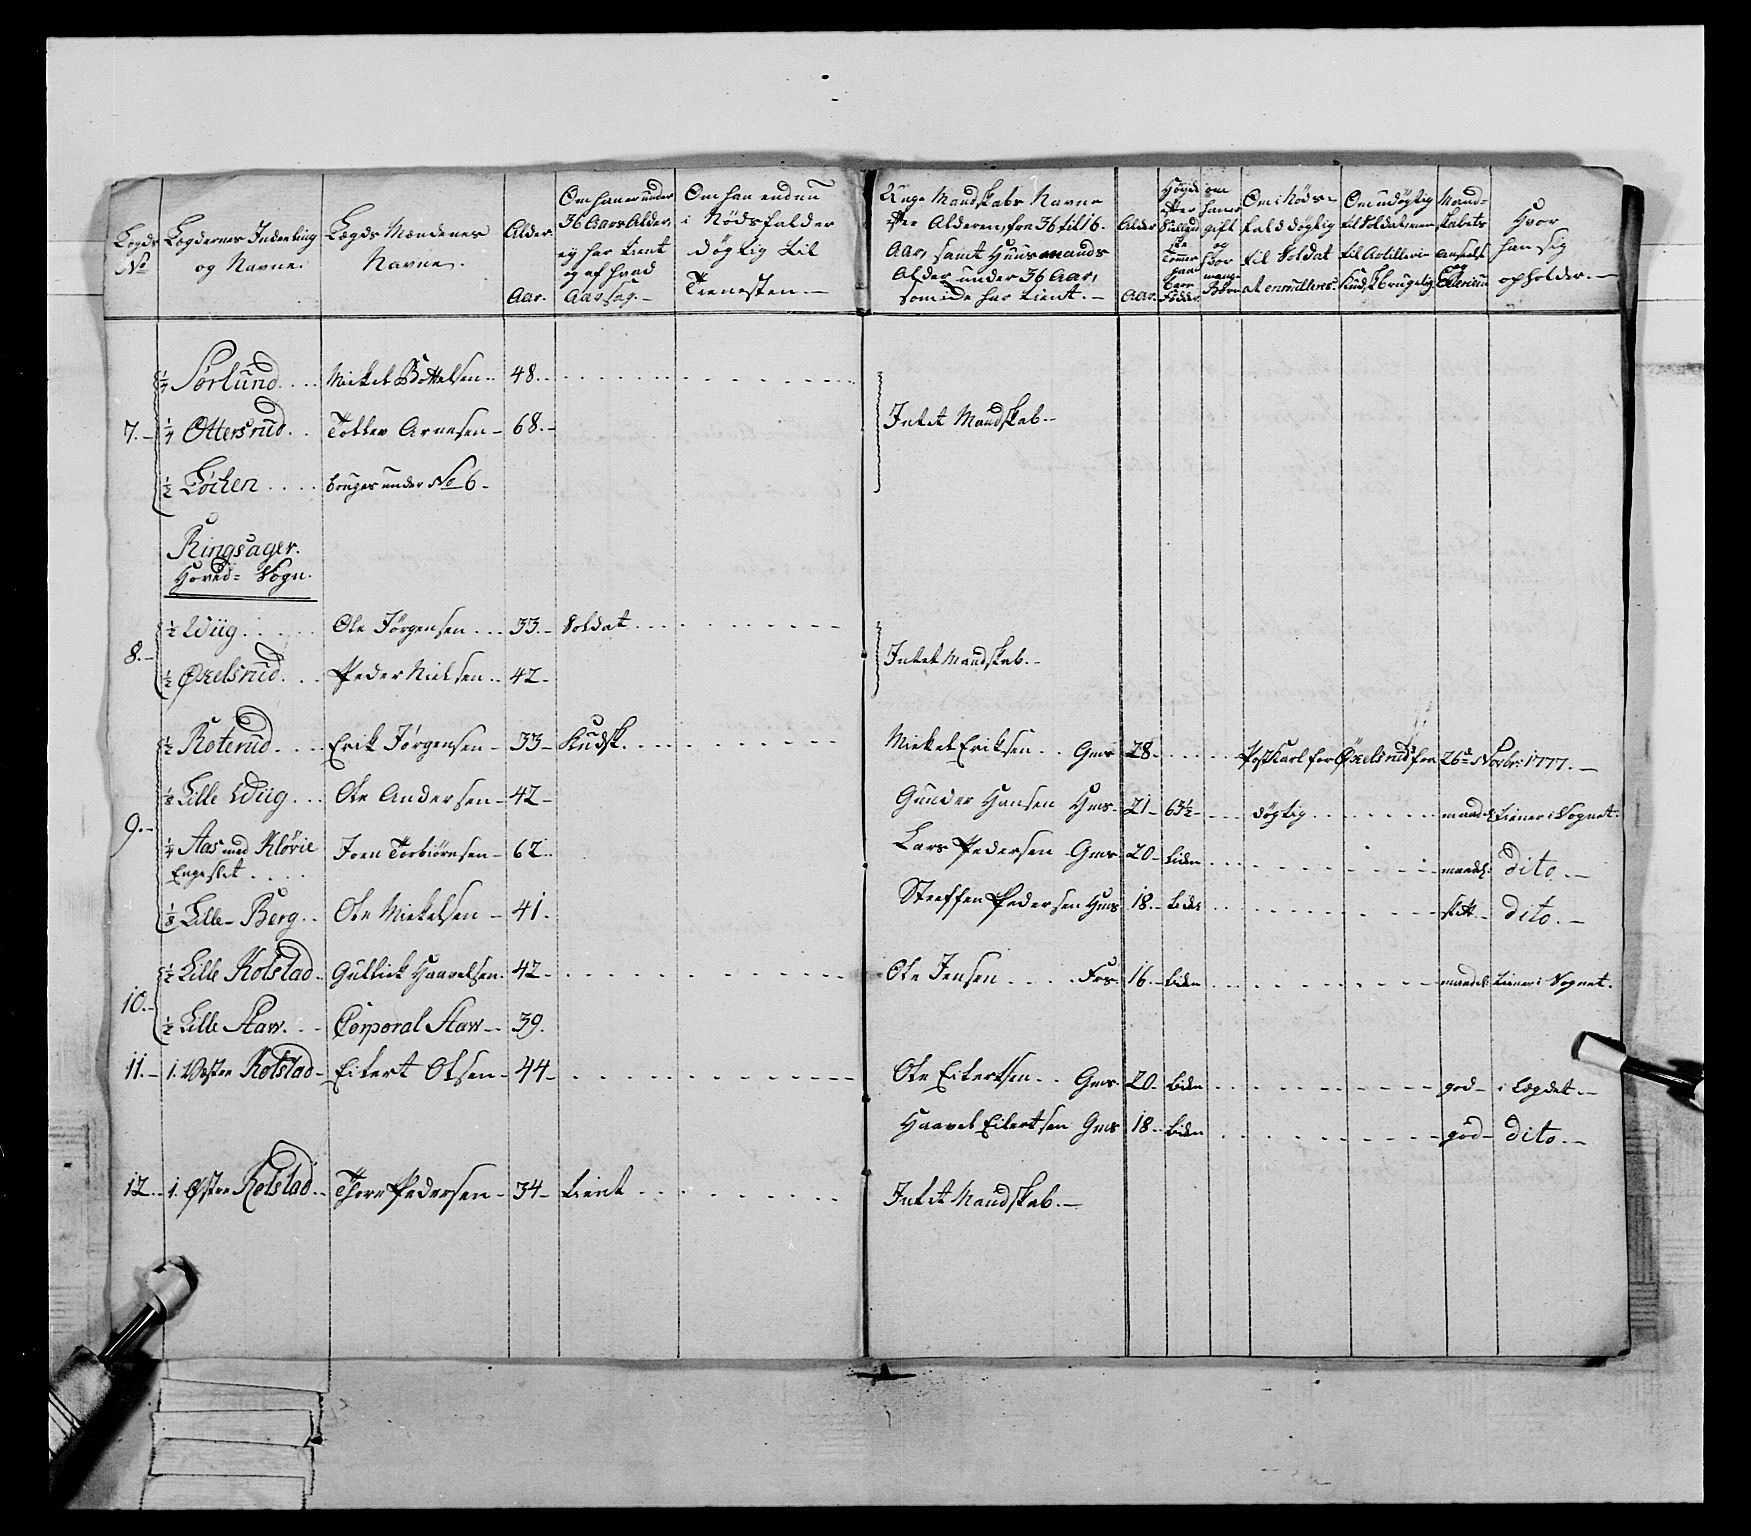 Lægds No
Lægdernes Indeeling og Navne.
Lægds Mændenes Navne.
Alder Aar.
Om han er under 36 Aars Alder, ey har tient og af hvad Aarsag.
Om han endnu i Nødsfalder døgtig til Tienesten.
Unge Mandskabs Navne efter Alderen, fra 36 til 16 Aar, samt Huusmænds Alder under 36 Aar, som ide har tient.
Alder Aar.
om han er gift og hvor mange Børn
Om i Nødsfald døgtig til Soldat
Om udøgtig til Soldat, men til Artillerie Kudsk brugelig
Mandskabets Anseelse
Hvor han sig opholder.
7. 1/4 Sørlund Mickel Bottelsen 48.
1/4 Ottersrud Tollev Arnesen 68. Intet Mandskab.
1/2 Löchen bruges under No 6.
Ringsager.
Hoved-Sogn.
8. 1/2 Wiig Ole Jørgensen 33. Soldat
1/2 Øxelsrud Peder Nielsen 42 Intet Mandskab.
9. 1/2 Roterud Erik Jørgensen 33 Kudsk. Mickel Eriksen Gms 28. Postkarl for Øxelsrud fra 26de Novbr: 1777.
1/8 Lille Wiig Ole Andersen 42 Gunder Hansen Hms 21 63½ døgtig maadel: tiener i Sognet.
1/4 Aas med Kløvie Engeslet Joen Torbiörnsen 62. Lars Pedersen Gms 20 liden maadel: dito.
1/8 Lille Berg Ole Mickelsen 41. Steffen Pedersen Hms 18. liden slet dito.
10. 1/2 Lille Kolstad Gullick Haavelsen 42 Ole Jensen Fors. 16. liden maadel: tiener i Sognet.
1/2 Lille Staw Corporal Staw 39.
11. 1. Vestre Kolstad Eilert Olsen 44 Ole Eilertsen Gms 20. liden god i Lægdet.
Haavel Eilertsen Gms 18. liden god dito.
12. 1. Østre Kolstad Thore Pedersen 34 tient Intet Mandskab.